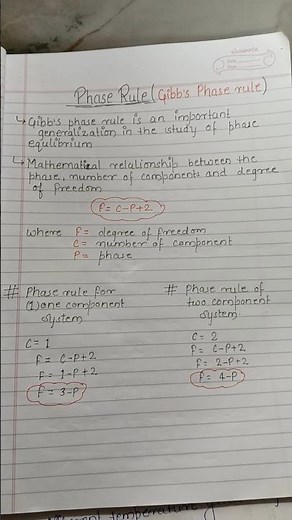 Phase Rule (Gibb's Phase rule)
↳ Gibb's phase rule is an important
generalization in the study of phase
equilibrium
↳ Mathematical relationship between the
phase, number of components and degree
of freedom
F = C-P+2
where F = degree of freedom
C = number of component
P = phase
# Phase rule for
(1) one component
system
C = 1
F = C-P+2
F = 1-P+2
F = 3-P
# Phase rule of
two component
system.
C = 2
F = C-P+2
F = 2-P+2
F = 4-P